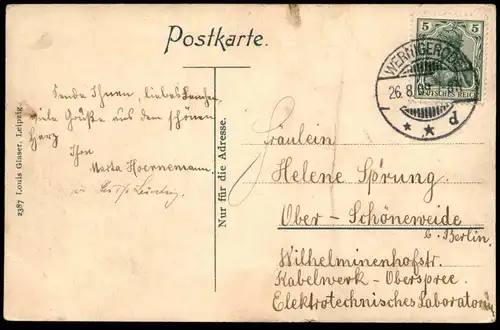 Postkarte.
5 5
WERNIGERODE
26.8.09
d
DEUTSCHES REICH
Sende Ihnen liebes
viele Grüße aus dem schönen
Harz
Ihre
Marta Hoernemann
u.
2387 Louis Glaser, Leipzig.
Nur für die Adresse.
Fräulein
Helene Sprung
Ober-Schöneweide
b. Berlin.
Wilhelminenhofstr.
Kabelwerk-Oberspree.
Elektrotechnisches Laboratorium